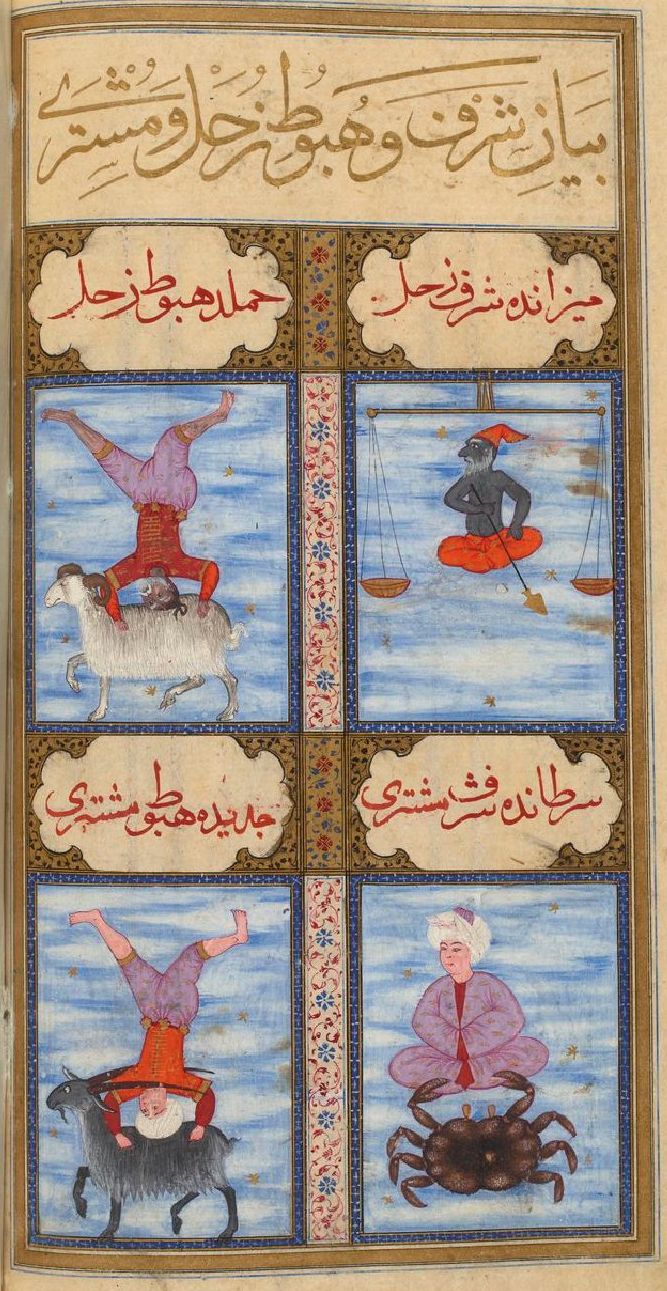 بيان شرف وهبوط زحل ومشتری
ميزانده شرف زحل
حملده هبوط زحل
سرطانده شرف مشتری
جديده هبوط مشتری